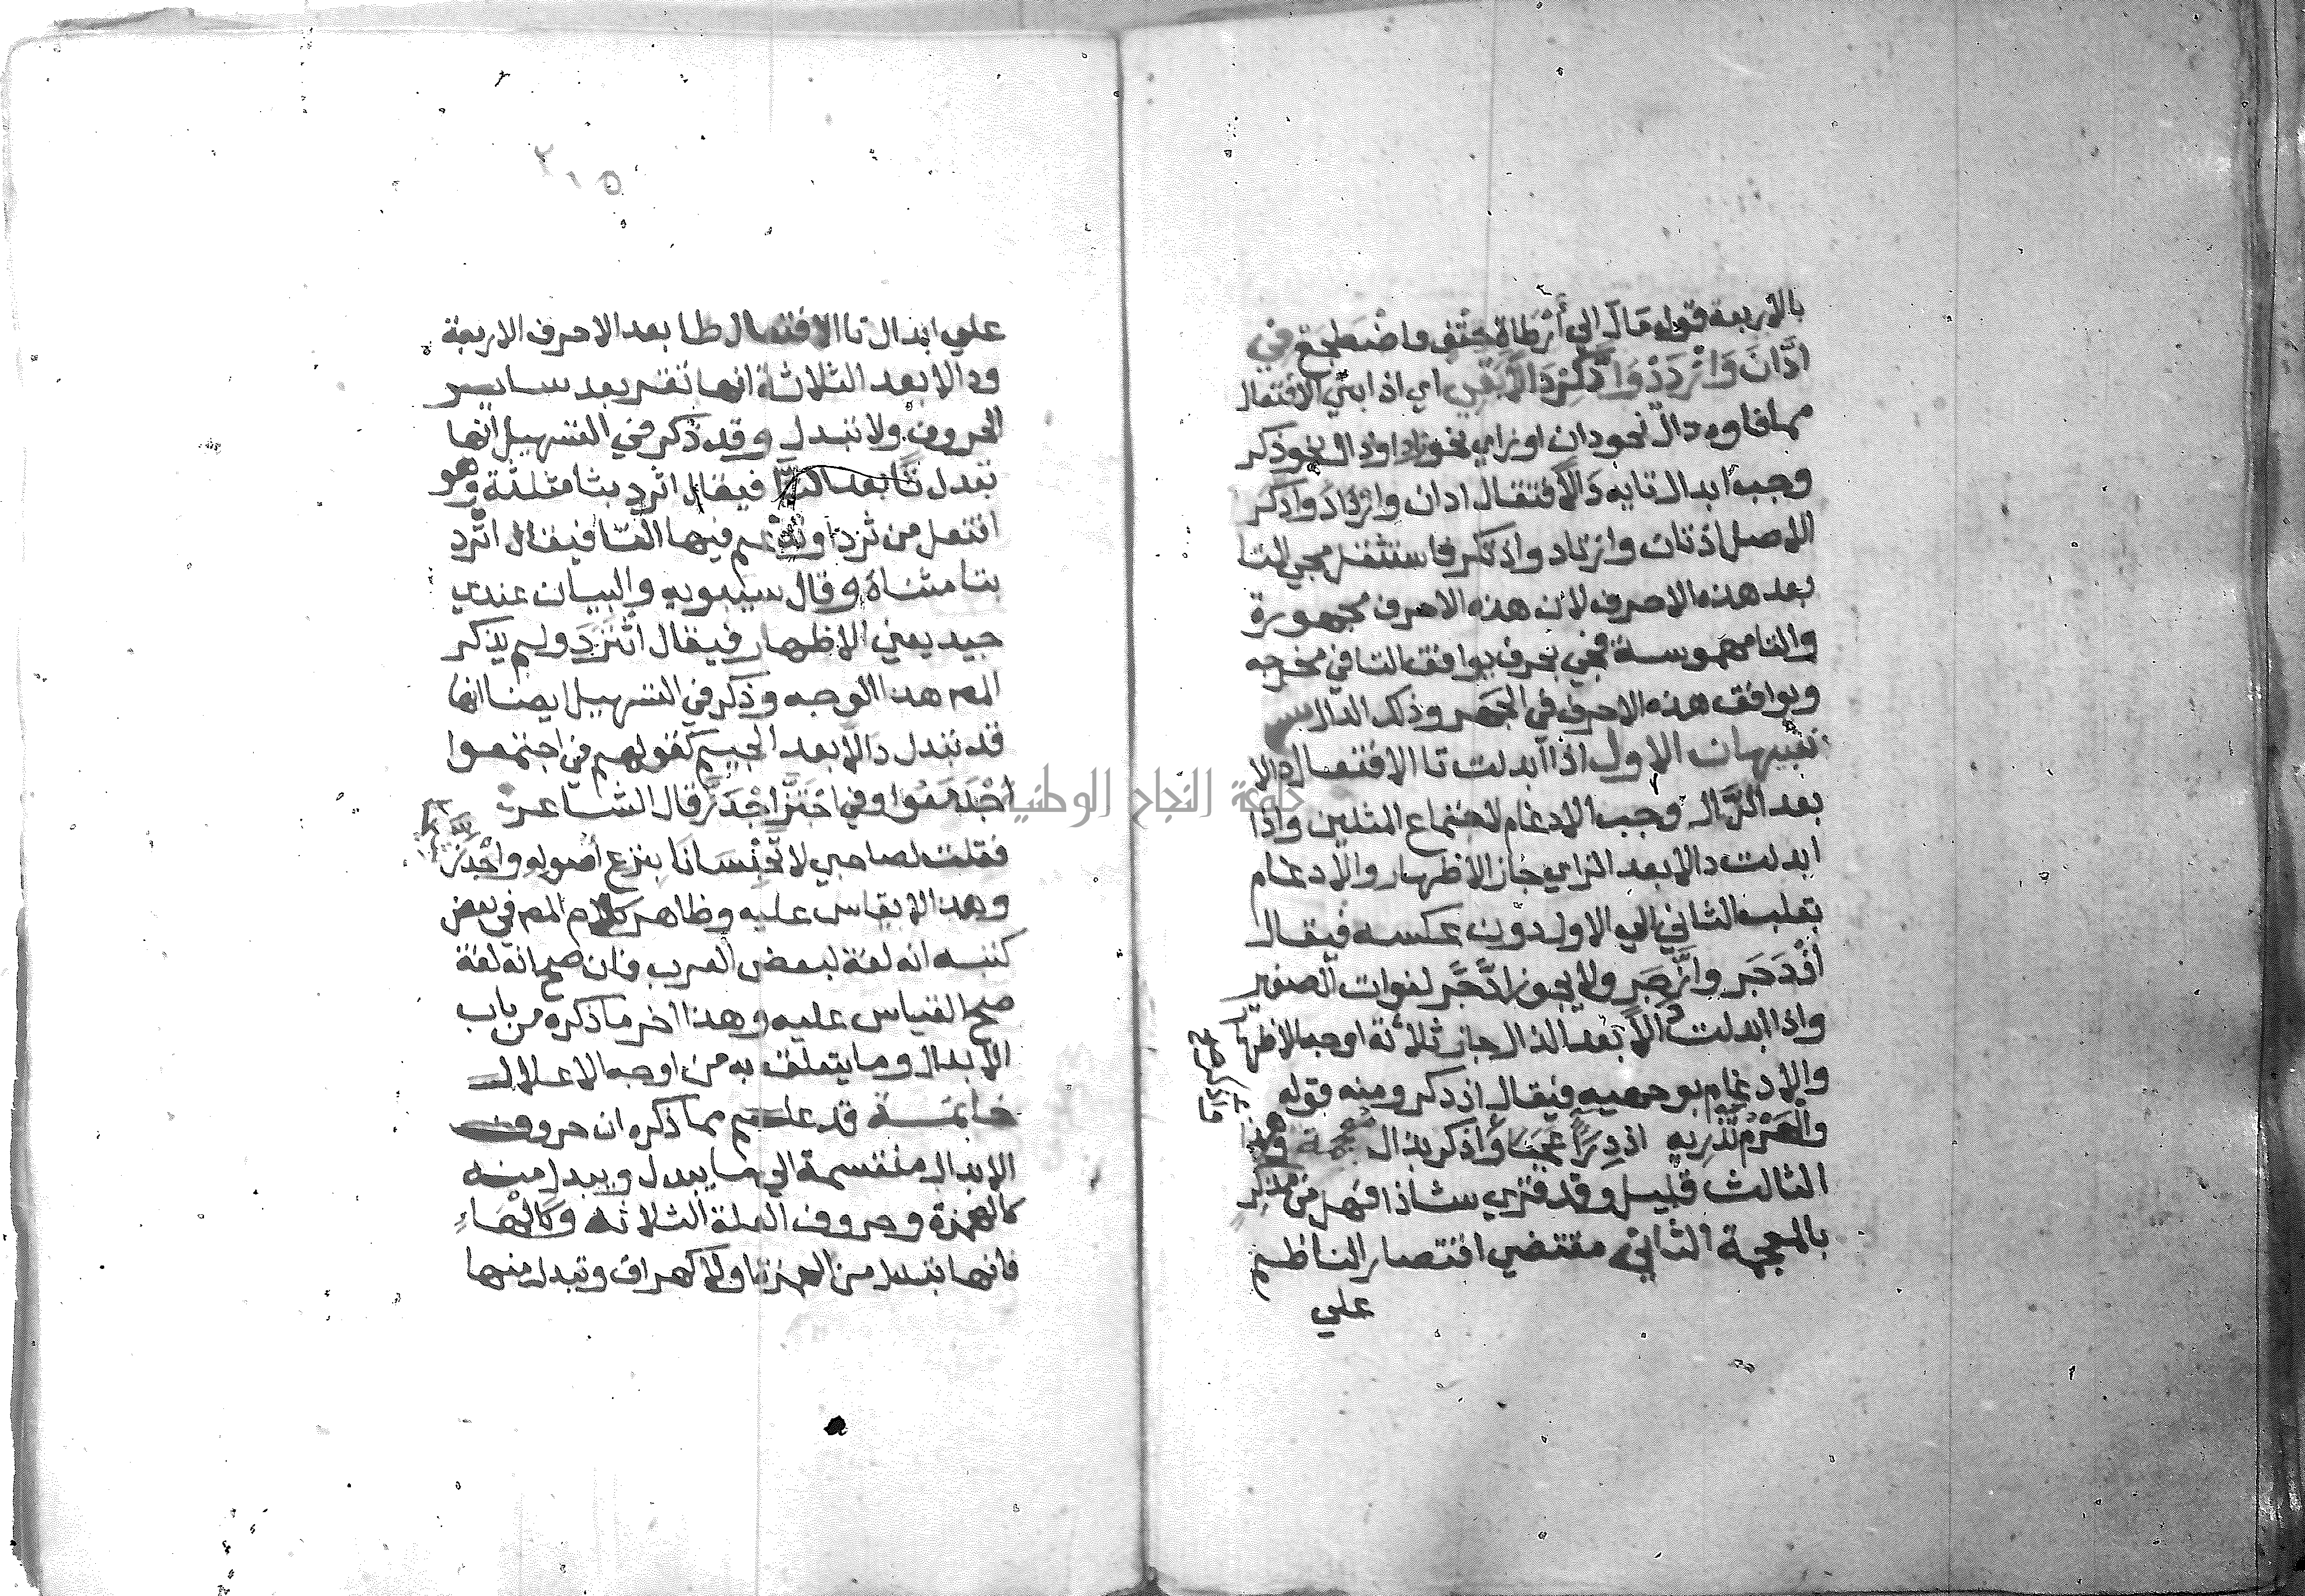 بالاربعة قوله مَالَ الي أَرْطَاةِ حِقْفٍ واضْطَجَعْ في
ادَّانَ وَازْدَدْ وَادَّكِرْ دَالاً بَقِي اي اذا بني الافتعال
مما فاوه دال نحو دان او زاي نحو زاد او ذال نحو ذكر
وجب ابدال تايه دَالاً فيقال ادان وازداد وادكر
الاصل ادتان وازتاد واذتكر فاستثقل مجي التا
بعد هذه الاحرف لان هذه الاحرف مجهورة
والتا مهموسة فجي بحرف يوافق التا في مخرجه
ويوافق هذه الاحرف في الجهر وذلك الدال
تنبيهان الاول اذا ابدلت تا الافتعال دالا
بعد الدال وجب الادغام لاجتماع المثلين واذا
ابدلت دالا بعد الزاي جاز الاظهار والادغام
بقلب الثاني الي الاول دون عكسه فيقال
ازْدَجَر وازَّجَر ولا يجوز ادَّجَر لفوات الصفير
واذا ابدلت دالاً بعد الذال جاز ثلاثة اوجه الاظهار
والادغام بوجهيه فيقال اذدكر ومنه قوله
والْهَرْمُ تُذْرِيهِ اذدِرَآءً عَجَبَا واذكر بذال معجمة وهذا
الثالث قليل وقد قري شاذا فهل من مذكر
بالمعجمة الثاني مقتضي اقتصار الناظم
علي
٢١٥
علي ابدال تا الافتعال طا بعد الاحرف الاربعة
ودالا بعد الثلاثة انها تقر بعد ساير
الحروف ولا تبدل وقد ذكر في التسهيل انها
تبدل ثا بعد الثا فيقال اثرد بثا مثلثة وهو
افتعل من ثرد او تدغم فيها الثا فيقال اتَّرد
بتا مثناة وقال سيبويه والبيان عندي
جيد يعني الاظهار فيقال اثْتَرَدَ ولم يذكر
المص هذا الوجه وذكر في التسهيل ايضا انها
قد تبدل دالاً بعد الجيم كقولهم في اجتمعوا
اجْدَمَعُوا وفي اجْتَزَّ اجْدَزَّ قال الشاعر
فقلت لصاحبي لا تَحْبِسَانَا بنزع أصوله واجْدَزَّ
وهذا لا يقاس عليه وظاهر كلام المص في بعض
كتبه انه لغة لبعض العرب فان صح انه لغة
صح القياس عليه وهذا اخر ما ذكره من باب
الابدال وما يتعلق به من اوجه الاعلال
خاتمة قد علم مما ذكره ان حروف
الابدال منقسمة الي ما يبدل ويبدل منه
كالهمزة وحروف العلة الثلاثه وكالهاء
فانها تبدل من الهمزة اولا كهراق وتبدل منها
جامعة النجاح الوطنية